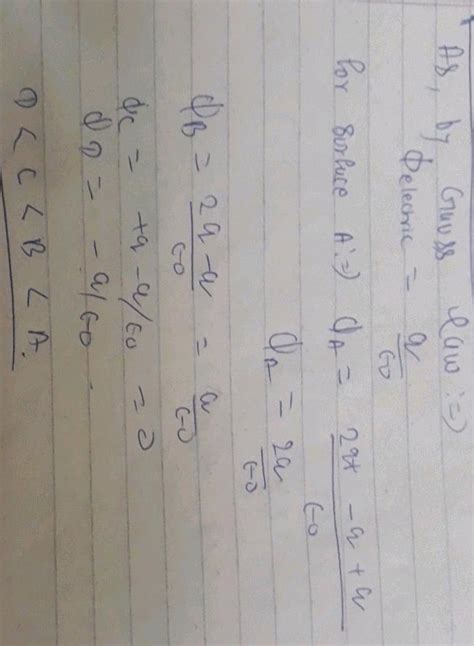 As, by Gauss law :⇒
Φelectric = q/ε0
for surface A :⇒ ΦA = 2q + -q + q / ε0
ΦA = 2q/ε0
ΦB = 2q - q / ε0 = q/ε0
ΦC = +q - q/ε0 = 0
ΦD = - q/ε0 .
D < C < B < A.